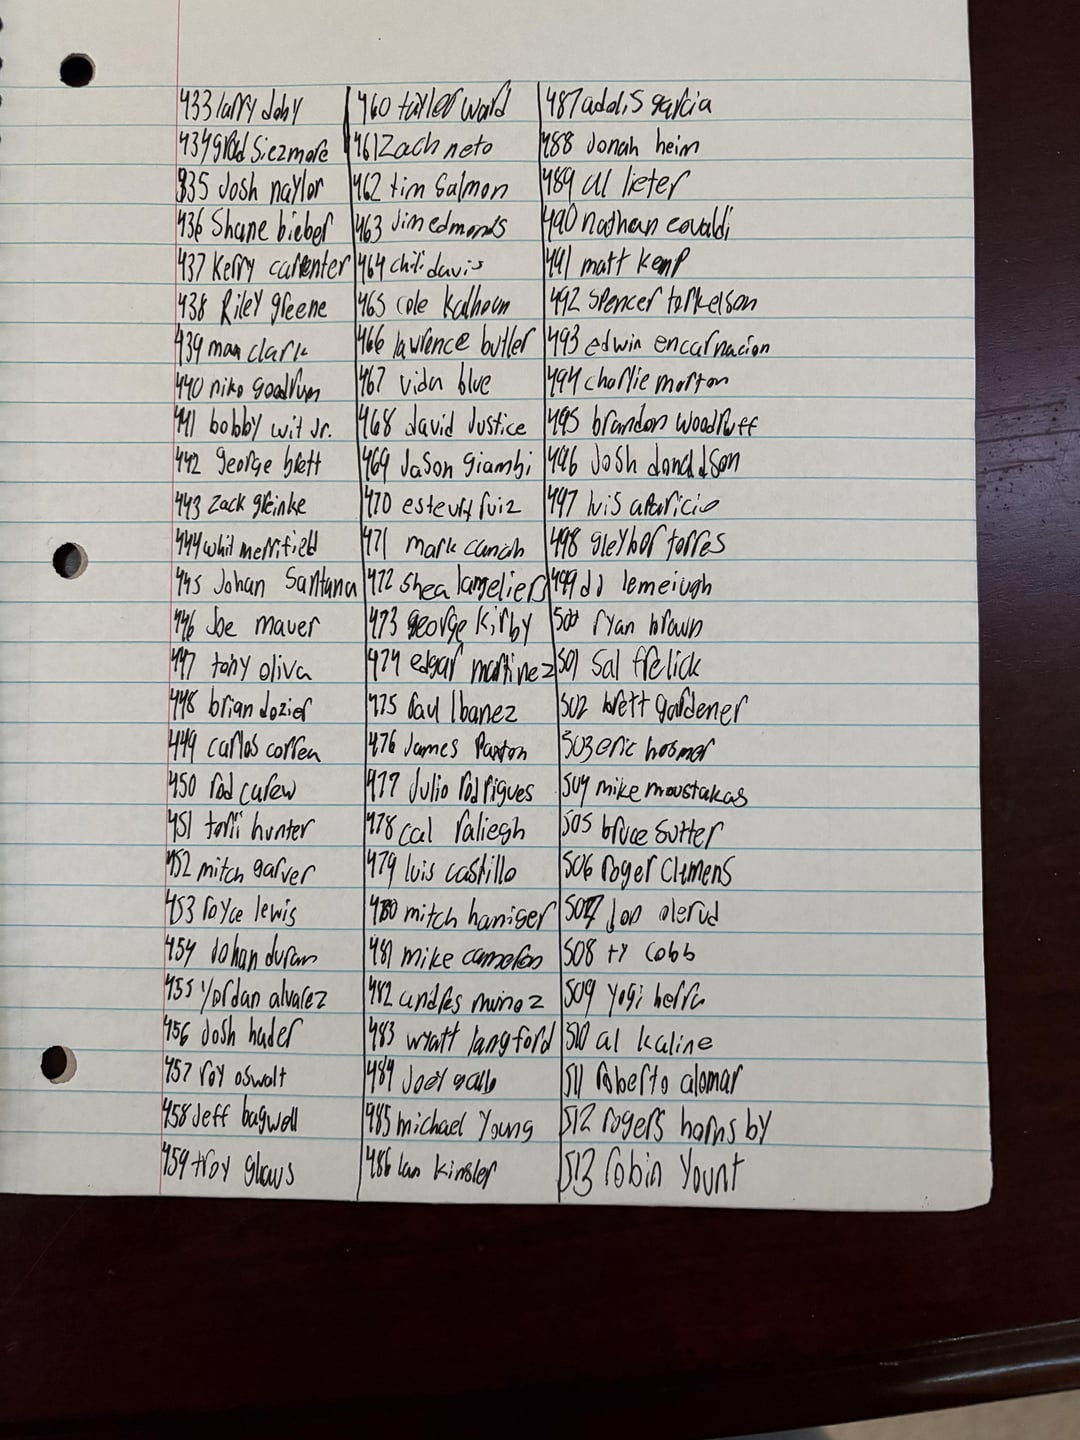 433 larry doby
434 grad Siezmore
935 Josh naylor
436 Shane bieber
437 Kerry carpenter
438 Riley greene
439 mark clark
440 niko goodrum
441 bobby wit Jr.
442 george brett
443 Zack greinke
444 whit merrifield
445 Johan Santana
446 Joe mauer
447 tony oliva
448 brian dozier
449 carlos correa
450 rod carew
451 torii hunter
452 mitch garver
453 royce lewis
454 Johan duran
455 Yordan alvarez
456 Josh hader
457 roy oswalt
458 Jeff bagwell
459 troy glaus
460 taylor ward
461 Zach neto
462 tim Salmon
463 Jim edmonds
464 chili davis
465 cole kalhoun
466 lawrence butler
467 vida blue
468 david Justice
469 Jason giambi
470 esteury ruiz
471 mark canah
472 Shea langeliers
473 george kirby
474 edgar martinez
475 raul Ibanez
476 James Paxton
477 Julio rodrigues
478 cal raliegh
479 luis castillo
480 mitch haniger
481 mike cameron
482 andres munoz
483 wyatt langford
484 Joey gallo
485 michael Young
486 Ian kinsler
487 adolis garcia
488 Jonah heim
489 al lieter
490 nathan eovaldi
491 matt kemp
492 Spencer torkelson
493 edwin encarnacion
494 charlie morton
495 brandon woodruff
496 Josh donaldson
497 luis aparicio
498 gleybor torres
499 dJ lemeiugh
500 ryan brown
501 Sal frelick
502 brett gardener
503 eric hosmer
504 mike moustakas
505 bruce Sutter
506 roger Clemens
507 Jon olerud
508 ty cobb
509 yogi berra
510 al kaline
511 roberto alomar
512 rogers hornsby
513 robin Yount